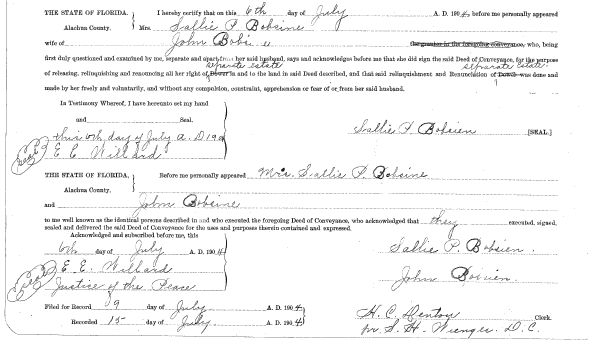 THE STATE OF FLORIDA, I hereby certify that on this 6th day of July A. D. 1904, before me personally appeared
Alachua County. Mrs. Sallie P Bobsine
wife of John Bobsine Co-grantor in the foregoing conveyance, who, being
first duly questioned and examined by me, separate and apart from her said husband, says and acknowledges before me that she did sign the said Deed of Conveyance, for the purpose
separate estate separate estate
of releasing, relinquishing and renouncing all her right of Dower in and to the land in said Deed described, and that said relinquishment and Renunciation of Dower was done and
made by her freely and voluntarily, and without any compulsion, constraint, apprehension or fear of or from her said husband.
In Testimony Whereof, I have hereunto set my hand
and Seal.
this 6th day of July A. D. 190 Sallie P. Bobsien [SEAL]
E E Willard
THE STATE OF FLORIDA, Before me personally appeared Mrs. Sallie P. Bobsine
Alachua County.
and John Bobsine
to me well known as the identical persons described in and who executed the foregoing Deed of Conveyance, who acknowledged that they executed, signed,
sealed and delivered the said Deed of Conveyance for the uses and purposes therein contained and expressed.
Acknowledged and subscribed before me, this
6th day of July A. D. 1904 Sallie P. Bobsien.
E. E. Willard John Bobsien.
Justice of the Peace
Filed for Record 9 day of July A. D. 1904 H. C. Denton Clerk.
Recorded 15 day of July. A. D. 1904 pr S. H. Wienges. D. C.